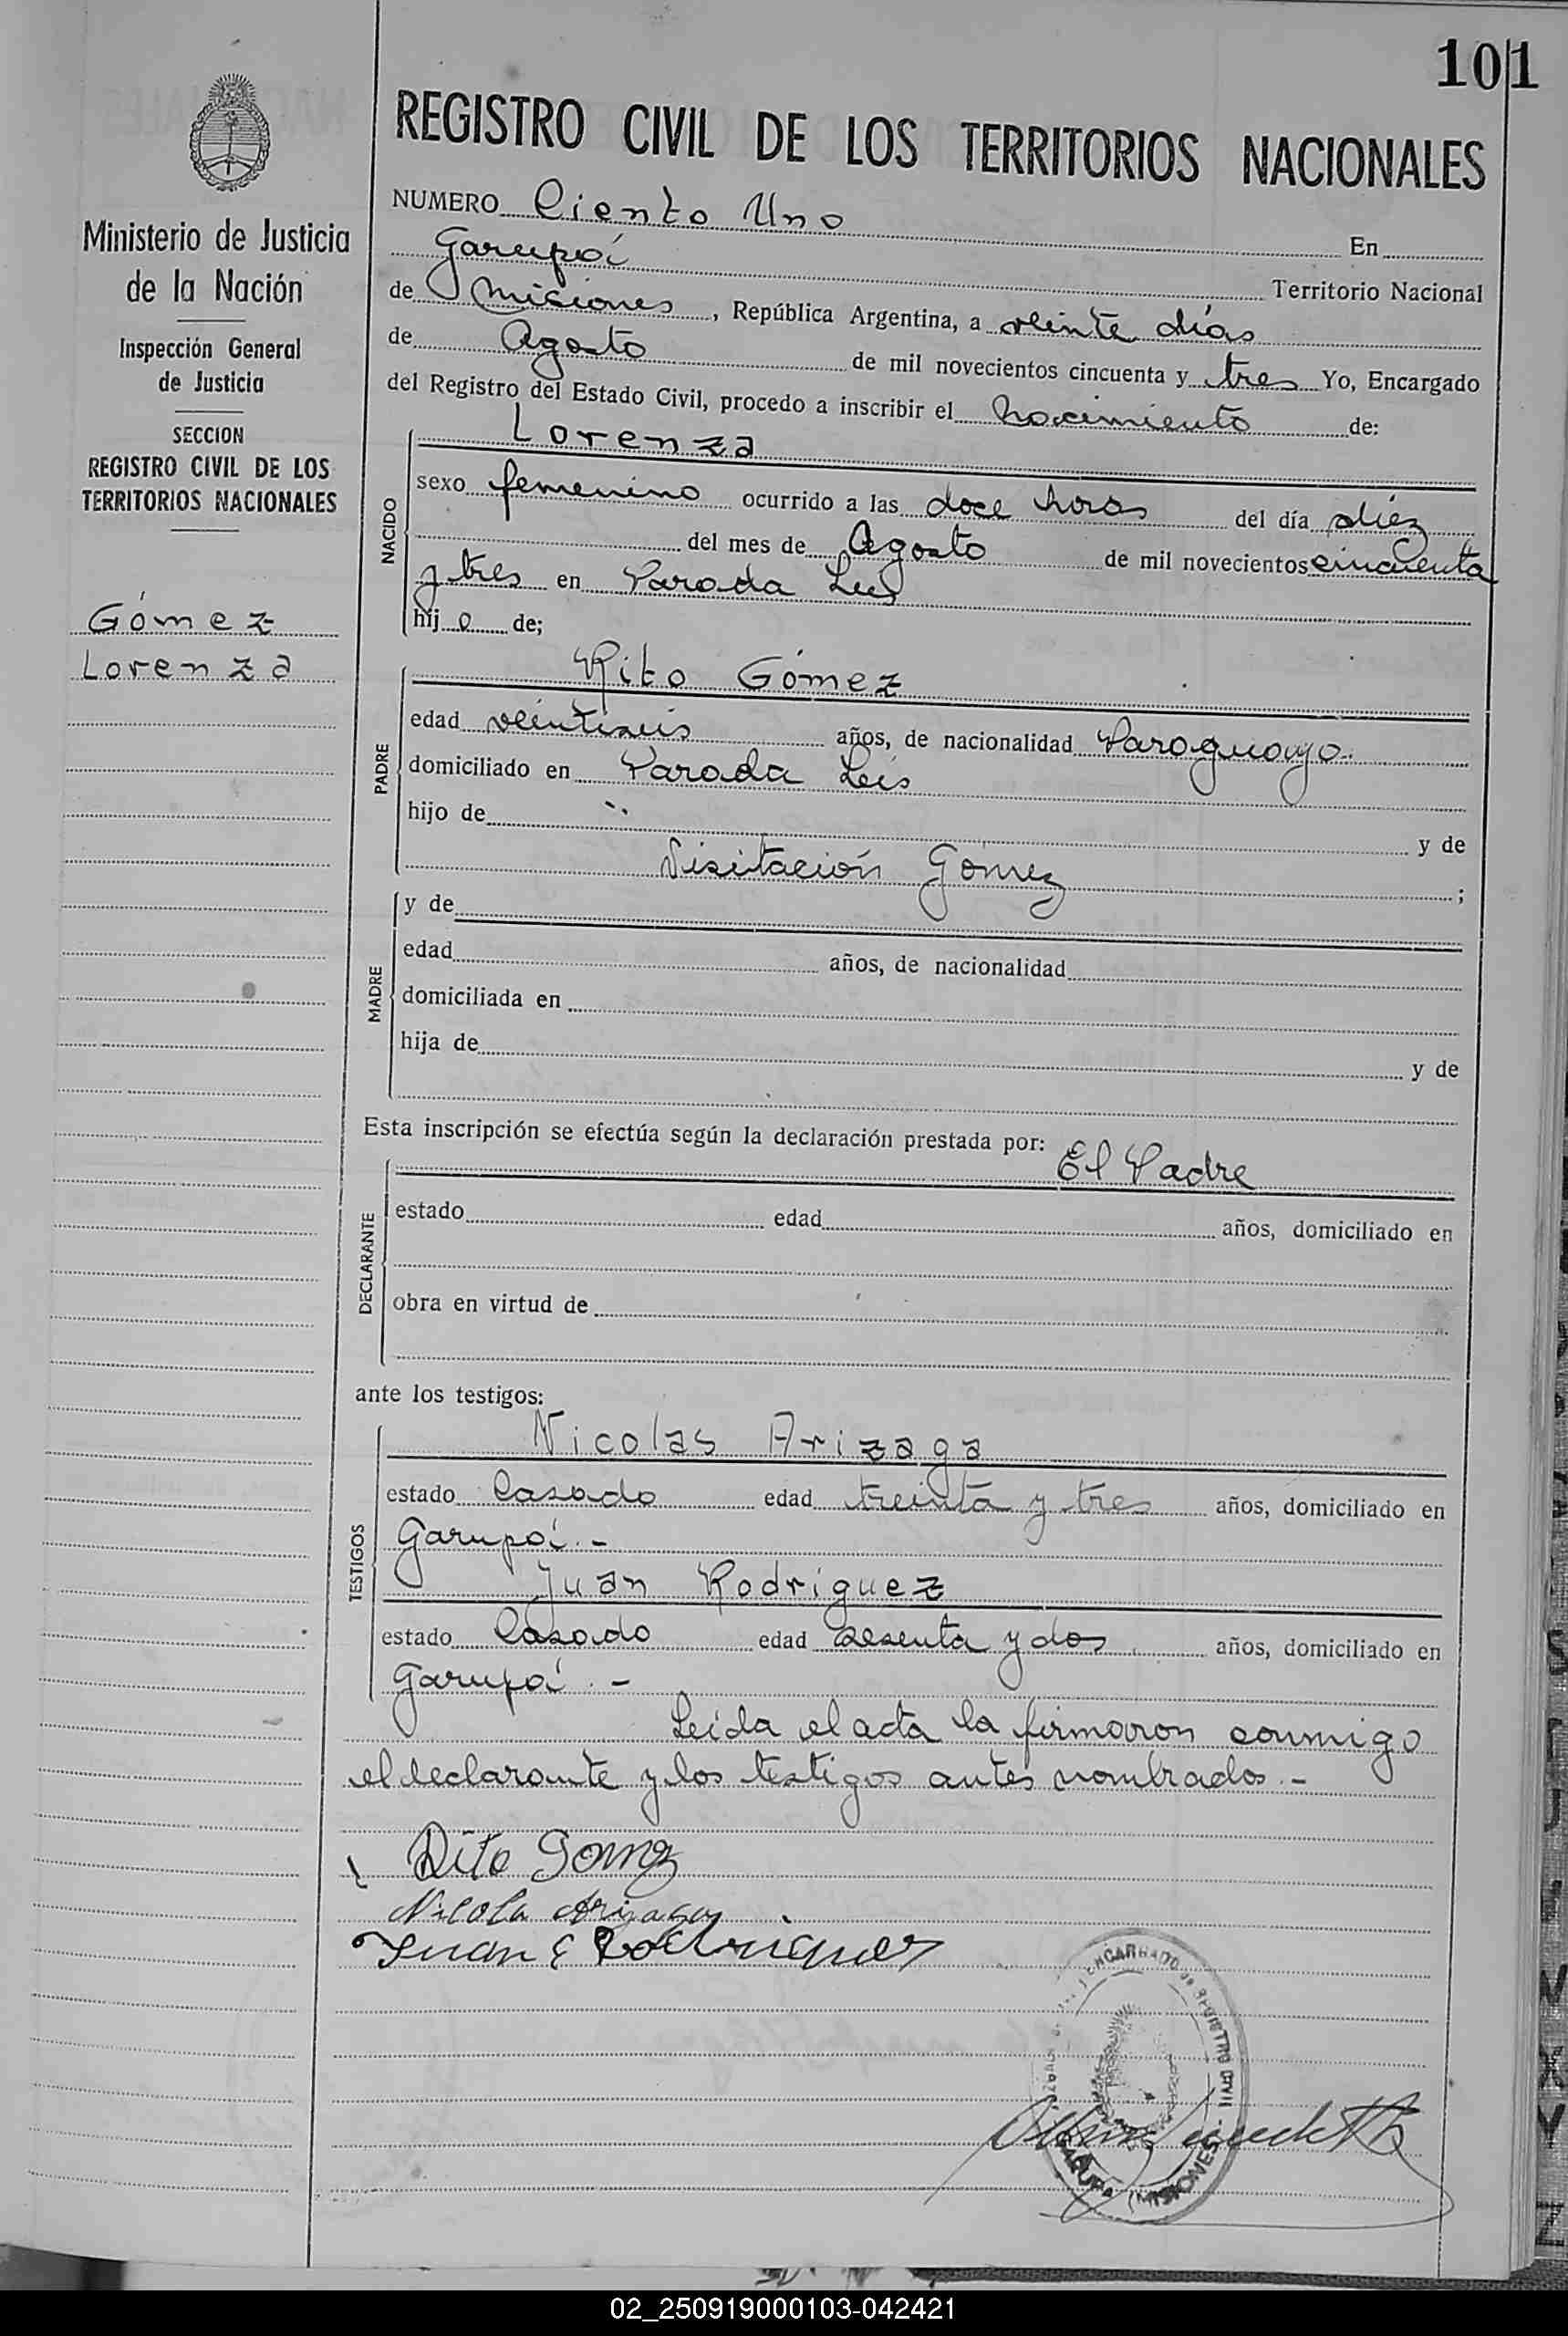 101
REGISTRO CIVIL DE LOS TERRITORIOS NACIONALES
Ministerio de Justicia
de la Nación
Inspección General
de Justicia
SECCION
REGISTRO CIVIL DE LOS
TERRITORIOS NACIONALES
Gómez
Lorenza
NUMERO Ciento Uno En
Garupá Territorio Nacional
de Misiones, República Argentina, a veinte días
de Agosto de mil novecientos cincuenta y tres Yo, Encargado
del Registro del Estado Civil, procedo a inscribir el Nacimiento de:
NACIDO
Lorenza
sexo femenino ocurrido a las doce horas del día diéz
del mes de Agosto de mil novecientos cincuenta
y tres en Parada Leis
hij a de;
PADRE
Rito Gómez
edad veintiseis años, de nacionalidad Paraguayo.
domiciliado en Parada Leis
hijo de y de
Visitación Gómez ;
MADRE
y de
edad años, de nacionalidad
domiciliada en
hija de y de
Esta inscripción se efectúa según la declaración prestada por:
El Padre
DECLARANTE
estado edad años, domiciliado en
obra en virtud de
ante los testigos:
TESTIGOS
Nicolas Arizaga
estado Casado edad treinta y tres años, domiciliado en
Garupá.-
Juan Rodriguez
estado Casado edad sesenta y dos años, domiciliado en
Garupá.-
Leida el acta la firmaron conmigo
el declarante y los testigos antes nombrados.-
Rito Gomez
Nicola Arizaga
Juan E Rodriguez
ENCARGADO de REGISTRO CIVIL
GARUPA (MISIONES)
02_250919000103-042421